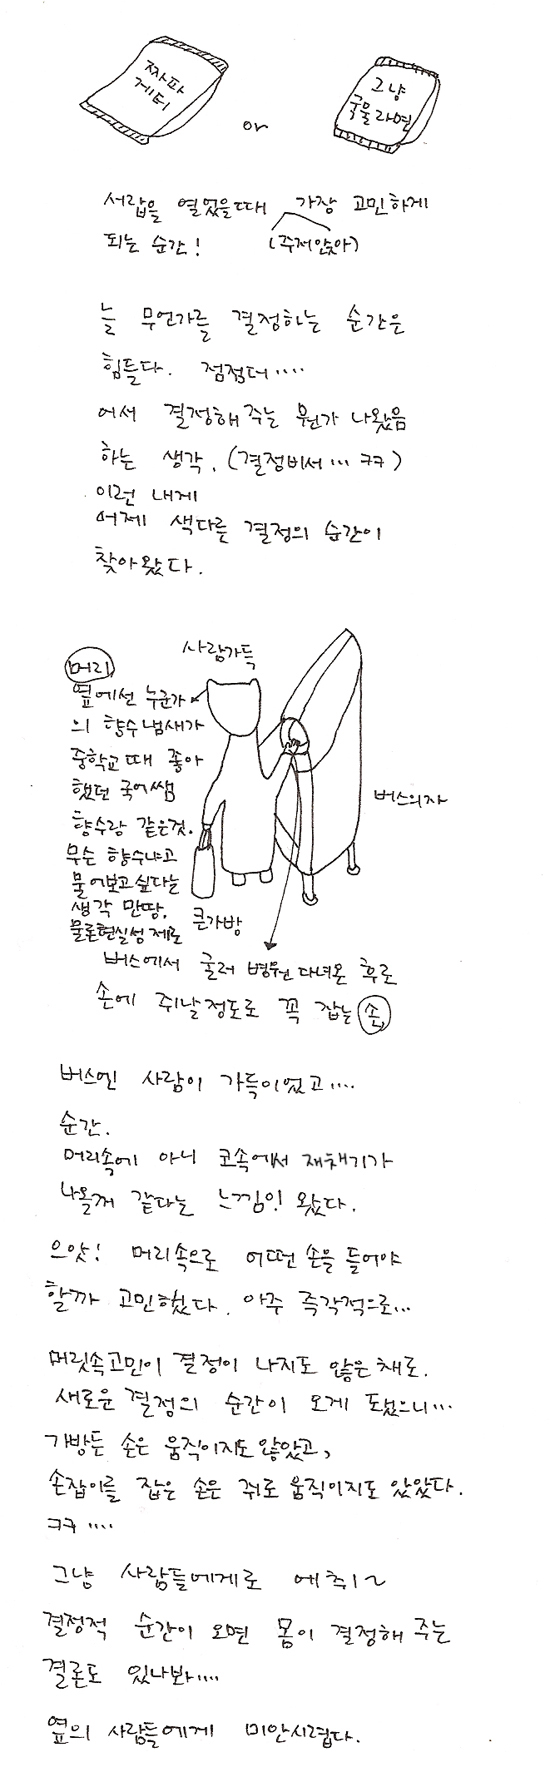 짜파
게티
or
그냥
국물라면
서랍을 열었을때 가장 고민하게
되는 순간! (주저앉아)
늘 무언가를 결정하는 순간은
힘들다. 점점더....
어서 결정해 주는 뭔가 나왔음
하는 생각. (결정비서... ㅋㅋ)
이런 내게
어제 색다른 결정의 순간이
찾아왔다.
사람가득
머리
옆에선 누군가
의 향수냄새가
중학교때 좋아
했던 국어쌤
향수랑 같은것.
무슨 향수냐고
물어보고싶다는
생각 만땅.
물론현실성제로
버스의자
큰가방
버스에서 굴러 병원 다녀온 후로
손에 쥐날정도로 꼭 잡는 손
버스엔 사람이 가득이었고....
순간.
머리속에 아니 코속에서 재채기가
나올꺼 같다는 느낌이 왔다.
으앗! 머리속으로 어떤 손을 들어야
할까 고민했다. 아주 즉각적으로...
머릿속고민이 결정이 나지도 않은채로.
새로운 결정의 순간이 오게 됐으니...
가방든 손은 움직이지도않았고,
손잡이를 잡은 손은 쥐로 움직이지도 않았다.
ㅋㅋ ....
그냥 사람들에게로 에취~
결정적 순간이 오면 몸이 결정해 주는
결론도 있나봐....
옆의 사람들에게 미안시럽다.